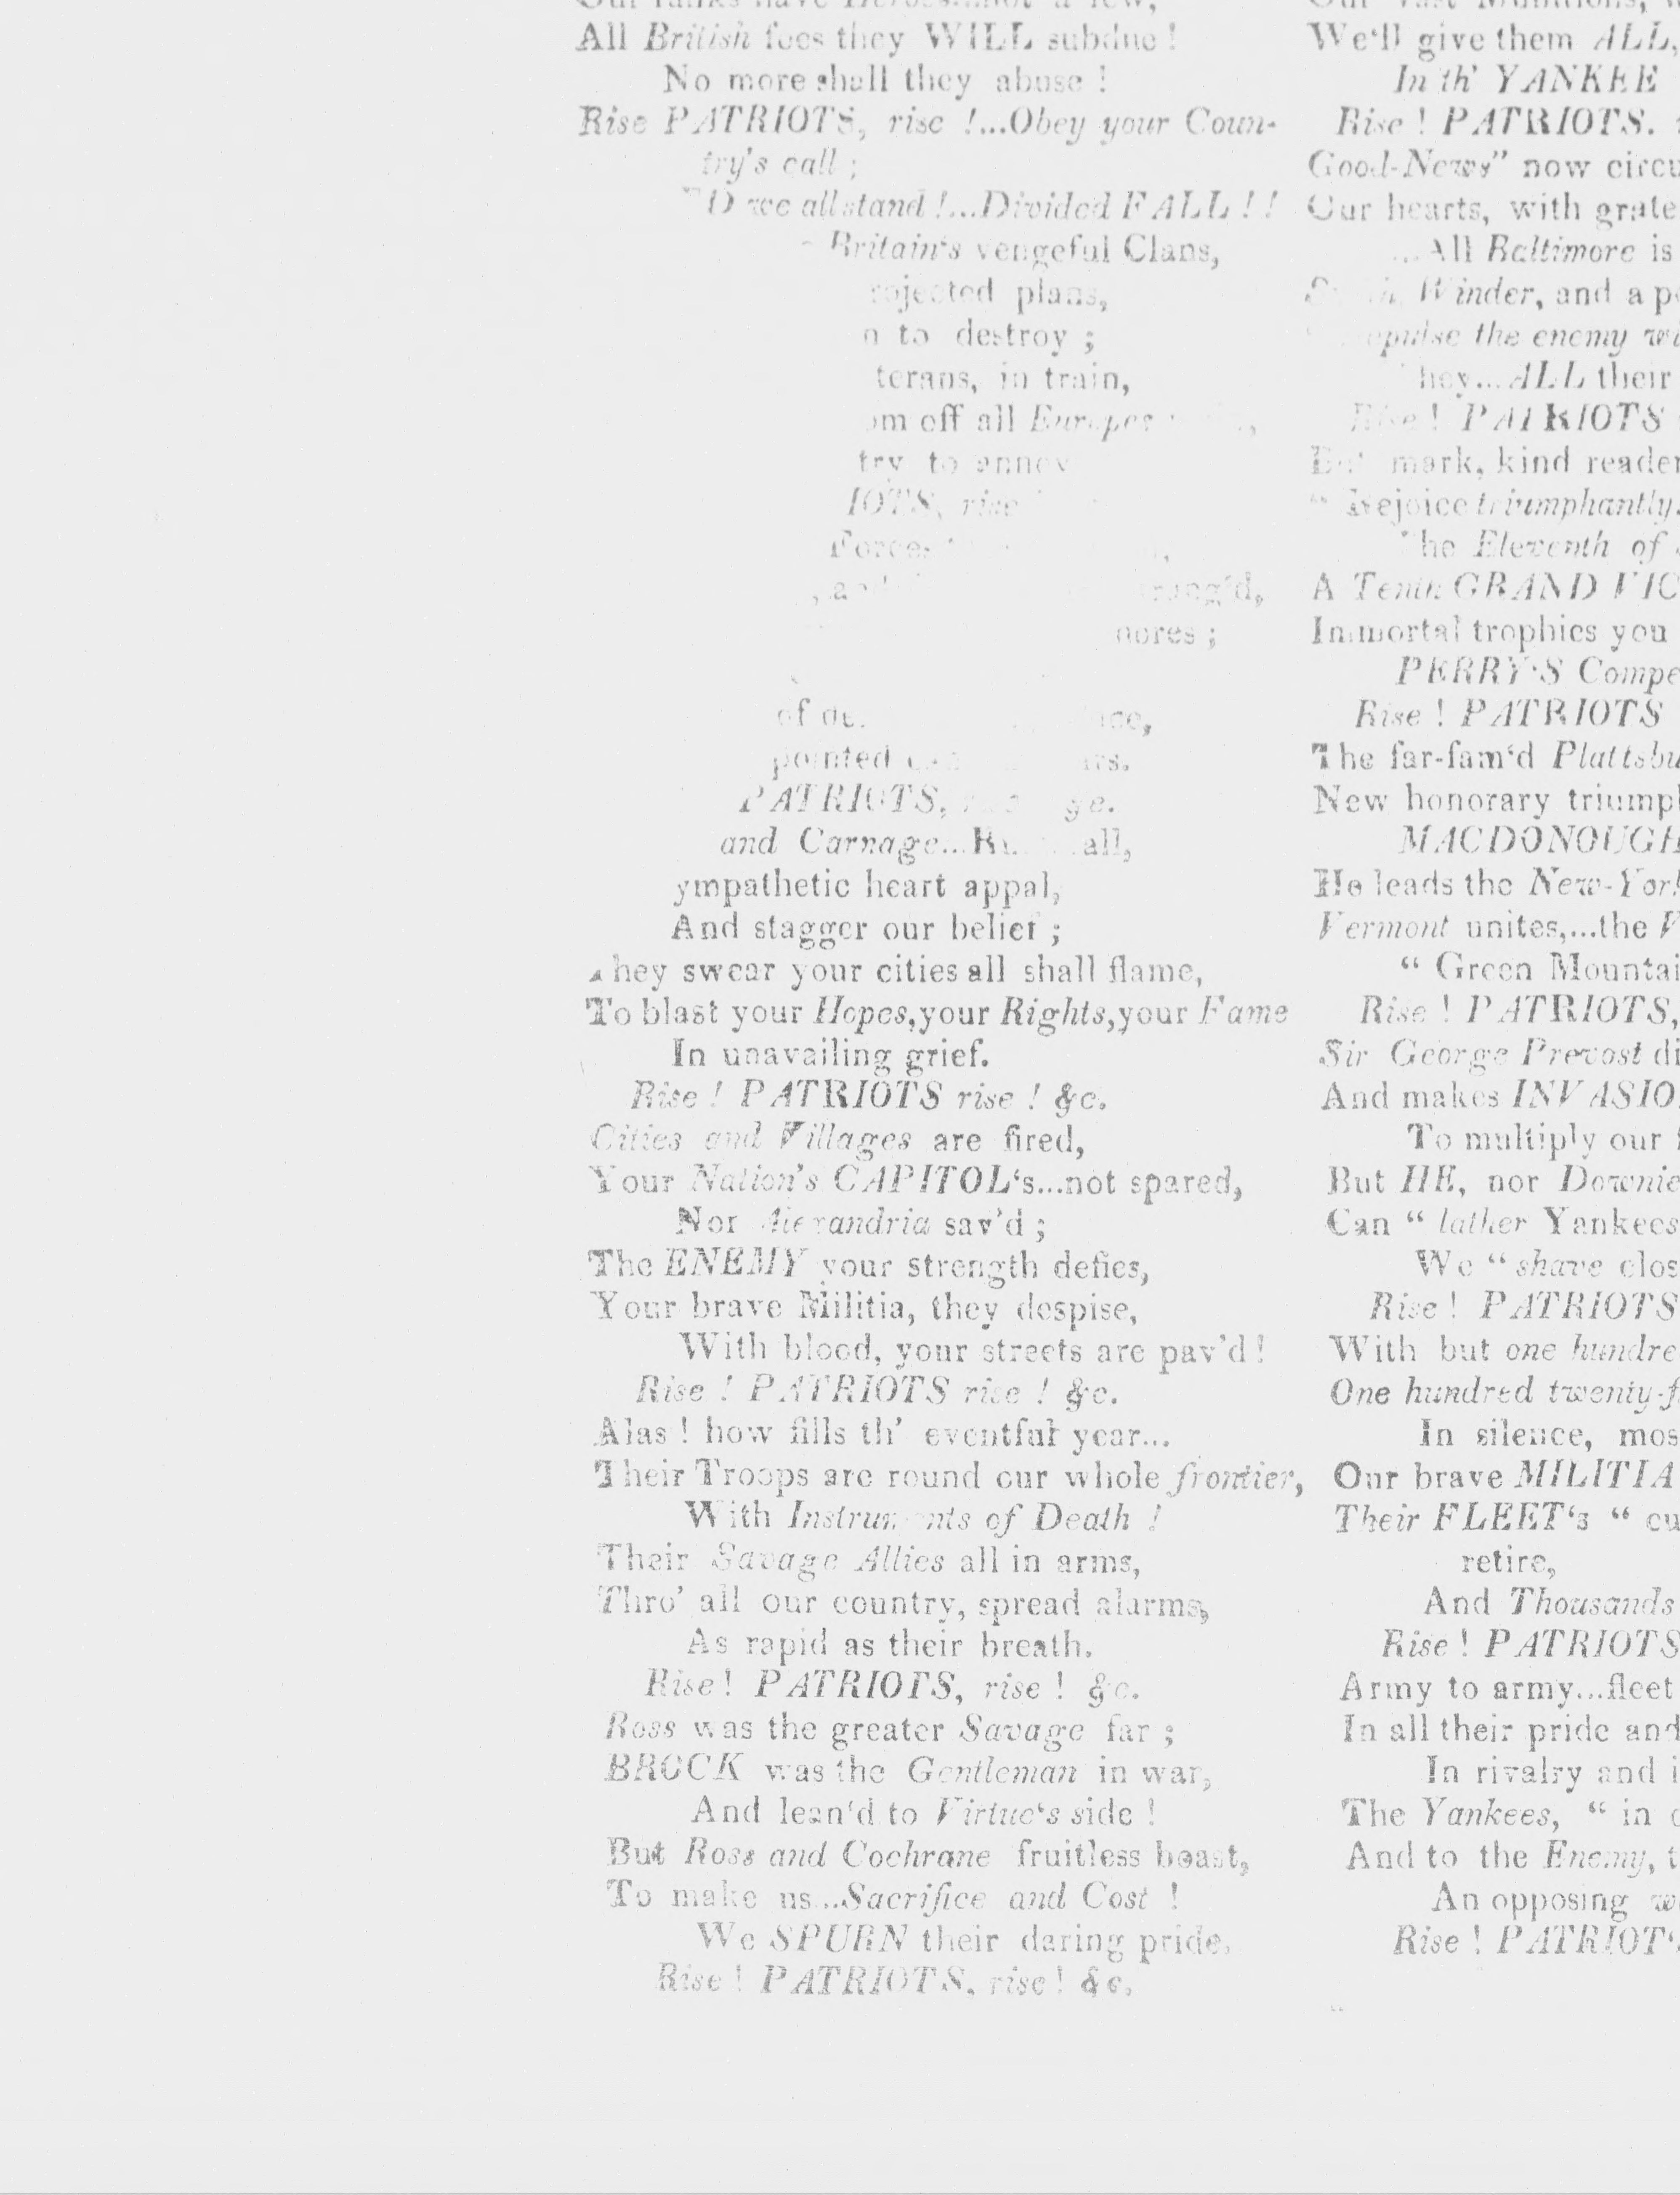 All British foes they WILL subdue !
No more shall they abuse !
Rise PATRIOTS, rise !...Obey your Coun-
try's call ;
D we all stand !...Divided FALL ! !
Britain's vengeful Clans,
rojected plans,
n to destroy ;
terans, in train,
om off all
try to
IOTS, rise
of
pointed
PATRIOTS,
and Carnage... all,
ympathetic heart appal,
And stagger our belief ;
hey swear your cities all shall flame,
To blast your Hopes, your Rights, your Fame
In unavailing grief.
Rise ! PATRIOTS rise ! &c.
Cities and Villages are fired,
Your Nation's CAPITOL‘s...not spared,
Nor Alexandria sav'd ;
The ENEMY your strength defies,
Your brave Militia, they despise,
With blood, your streets are pav'd !
Rise ! PATRIOTS rise ! &c.
Alas ! how fills th' eventful year...
Their Troops are round our whole frontier,
With Instruments of Death !
Their Savage Allies all in arms,
Thro' all our country, spread alarms,
As rapid as their breath.
Rise ! PATRIOTS, rise ! &c.
Ross was the greater Savage far ;
BROCK was the Gentleman in war,
And lean‘d to Virtue‘s side !
But Ross and Cochrane fruitless boast,
To make us...Sacrifice and Cost !
We SPURN their daring pride.
Rise ! PATRIOTS, rise ! &c.
We‘ll give them ALL,
In th' YANKEE
Rise ! PATRIOTS.
Good-News" now circu
Our hearts, with grate
...All Baltimore is
Winder, and a p
epulse the enemy wi
hey...ALL their
Rise ! PATRIOTS
mark, kind reader
" Rejoice triumphantly.
The Eleventh of
A Tenth GRAND VIC
Immortal trophies you
PERRY'S Compe
Rise ! PATRIOTS
The far-fam‘d Plattsbu
New honorary triumph
MACDONOUGH
He leads the New-York
Vermont unites,...the V
“ Green Mountai
Rise ! PATRIOTS,
Sir George Prevost di
And makes INVASIO
To multiply our
But HE, nor Downie
Can “ lather Yankees
We “ shave clos
Rise ! PATRIOTS
With but one hundre
One hundred twenty-f
In silence, mos
Our brave MILITIA
Their FLEET‘s “ cu
retire,
And Thousands
Rise ! PATRIOTS
Army to army...fleet
In all their pride and
In rivalry and i
The Yankees, “ in
And to the Enemy, t
An opposing w
Rise ! PATRIOT‘